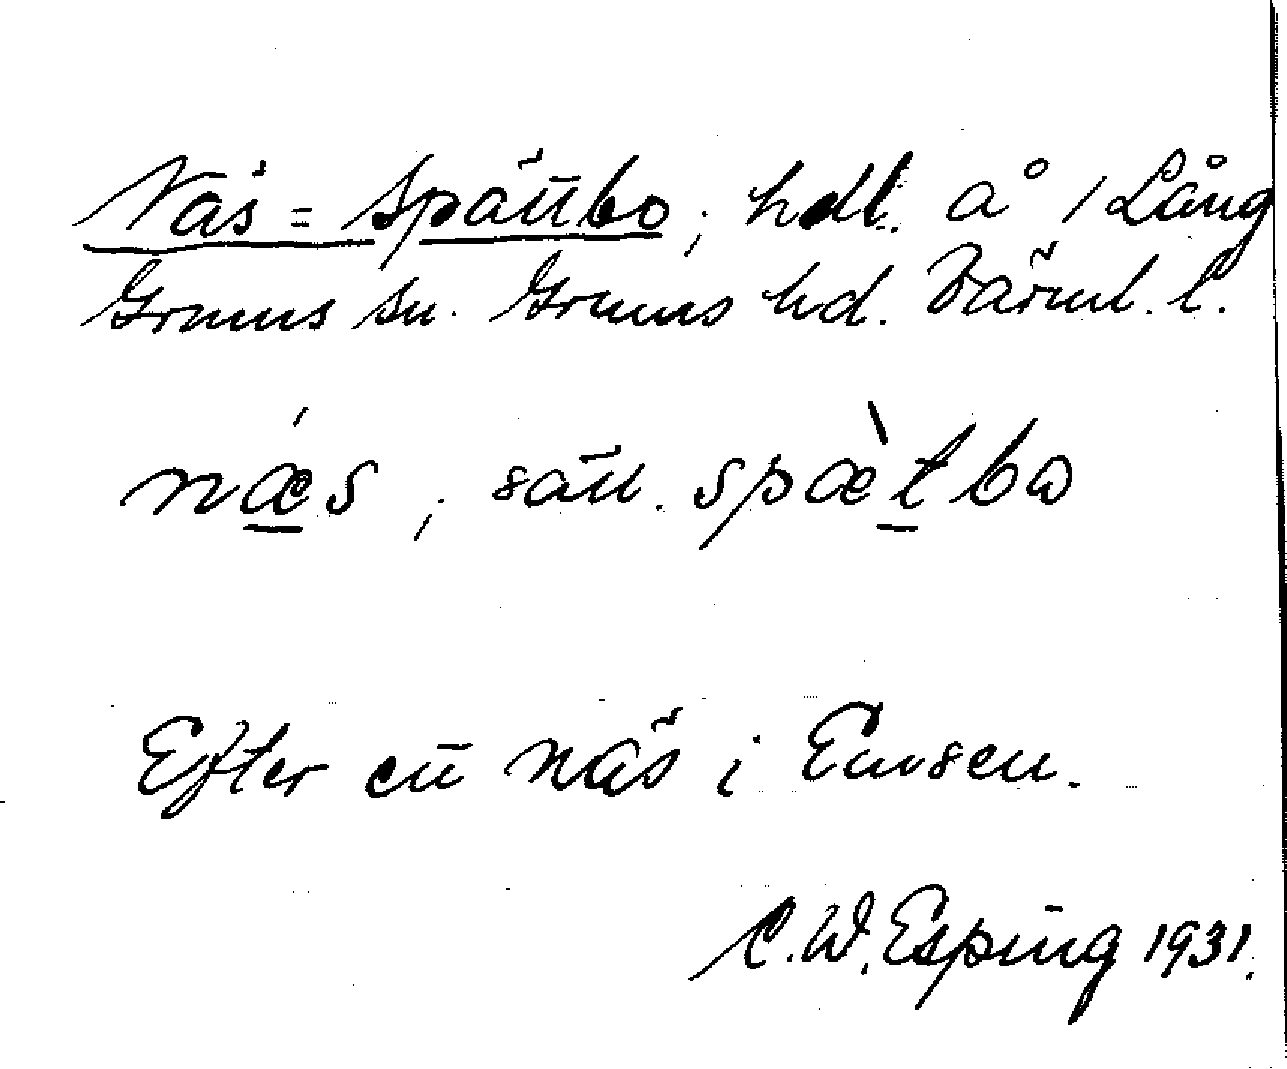 Näs = Spättbo; hdl. å 1 Lång
Grums sn. Grums hd. Värml. l.
næs, sätt. spætbo
Efter ett näs i Ensen.
C. W. Esping 1931.